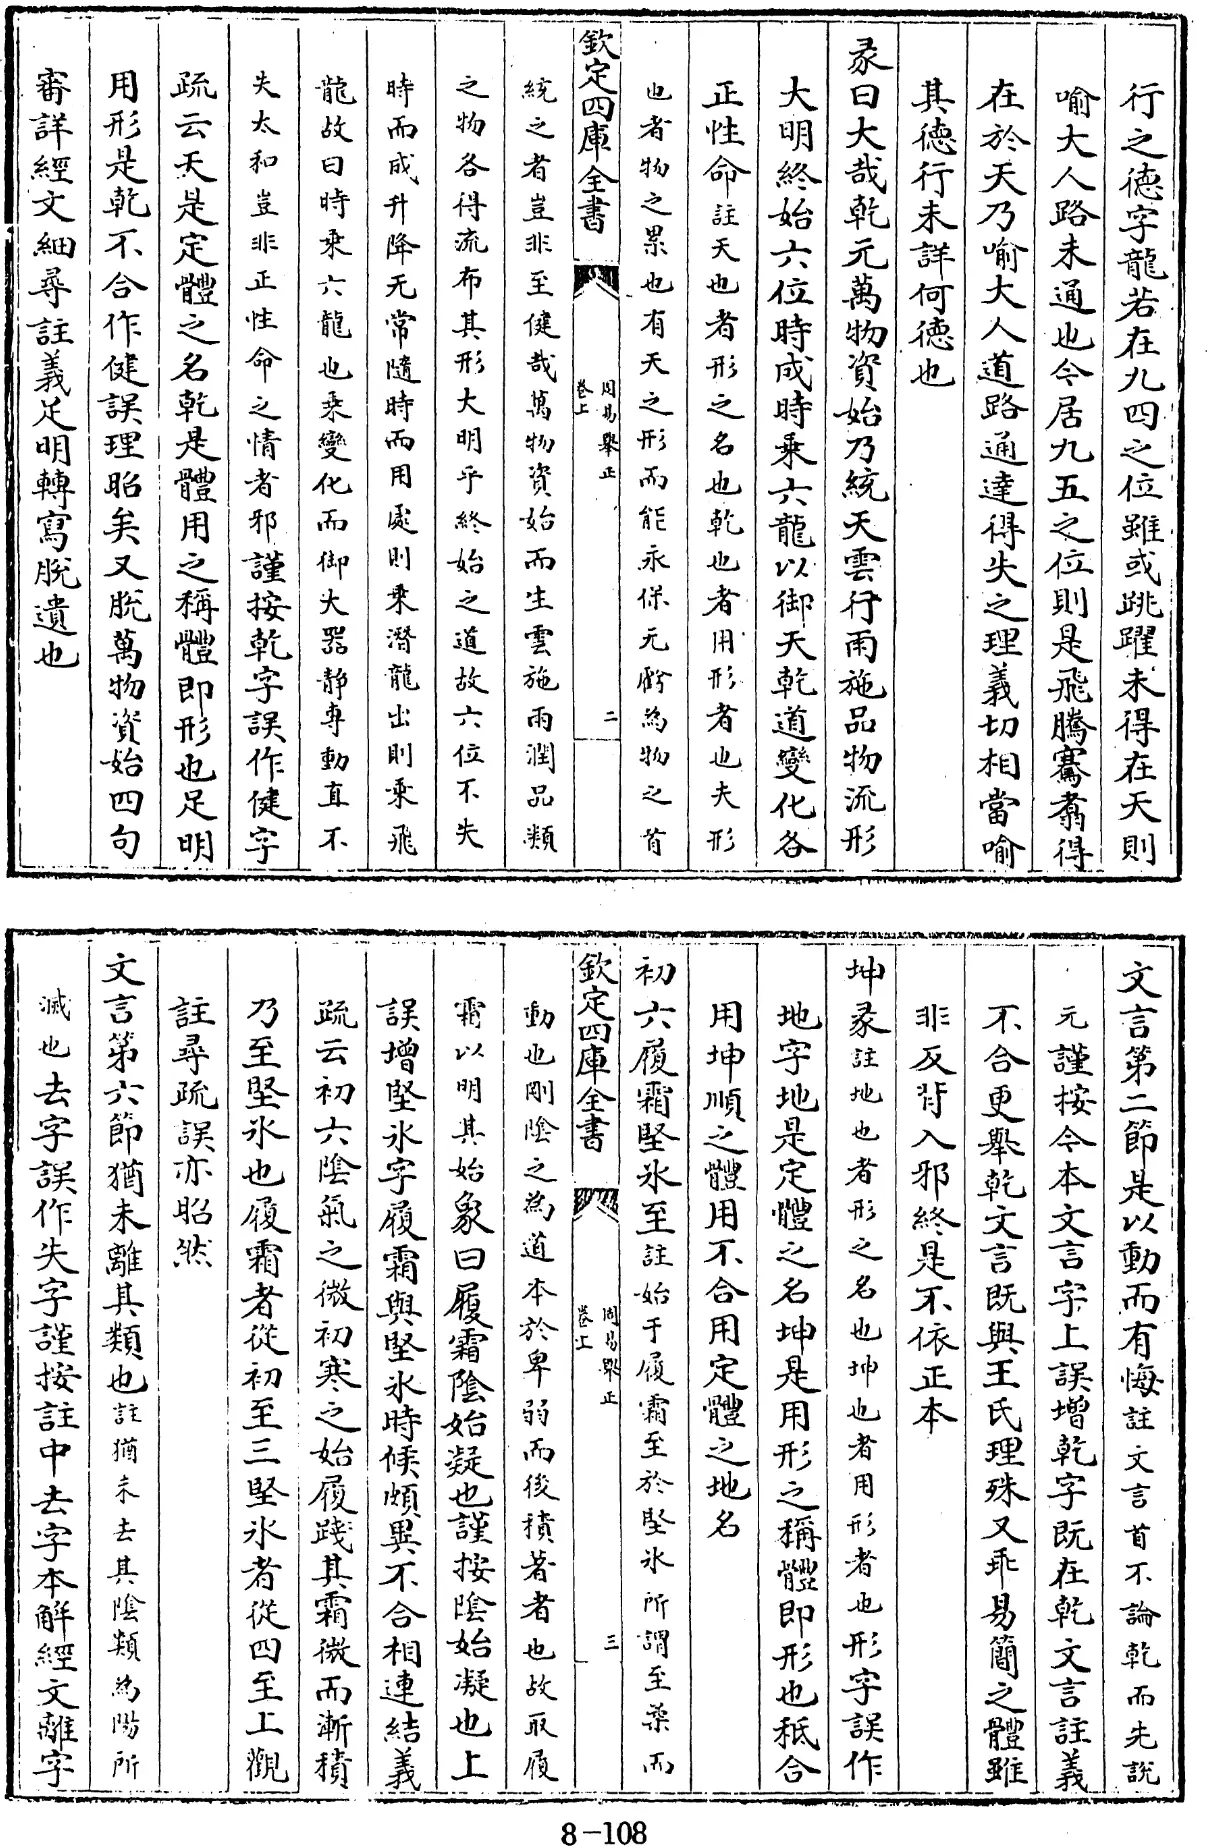 行之德字龍若在九四之位雖或跳躍未得在天則
喻大人路未通也今居九五之位則是飛騰騫翥得
在於天乃喻大人道路通達得失之理義切相當喻
其德行未詳何德也
彖曰大哉乾元萬物資始乃統天雲行雨施品物流形
大明終始六位時成時乘六龍以御天乾道變化各
正性命註天也者形之名也乾也者用形者也夫形
也者物之累也有天之形而能永保无虧為物之首
欽定四庫全書
周易舉正
卷上
二
統之者豈非至健哉萬物資始而生雲施雨潤品類
之物各得流布其形大明乎終始之道故六位不失
時而成升降无常隨時而用處則乘潛龍出則乘飛
龍故曰時乘六龍也乘變化而御大器靜專動直不
失太和豈非正性命之情者邪謹按乾字誤作健字
疏云天是定體之名乾是體用之稱體即形也足明
用形是乾不合作健誤理昭矣又脫萬物資始四句
審詳經文細尋註義足明轉寫脫遺也
文言第二節是以動而有悔註文言首不論乾而先說
元謹按今本文言字上誤增乾字既在乾文言註義
不合更舉乾文言既與王氏理殊又乖易簡之體雖
非反背入邪終是不依正本
坤彖註地也者形之名也坤也者用形者也形字誤作
地字地是定體之名坤是用形之稱體即形也秪合
用坤順之體用不合用定體之地名
初六履霜堅氷至註始于履霜至於堅氷所謂至柔而
欽定四庫全書
周易舉正
卷上
三
動也剛陰之為道本於卑弱而後積著者也故取履
霜以明其始象曰履霜陰始凝也謹按陰始凝也上
誤增堅氷字履霜與堅氷時候頗異不合相連結義
疏云初六陰氣之微初寒之始履踐其霜微而漸積
乃至堅氷也履霜者從初至三堅氷者從四至上觀
註尋疏誤亦昭然
文言第六節猶未離其類也註猶未去其陰類為陽所
滅也去字誤作失字謹按註中去字本解經文離字
8-108